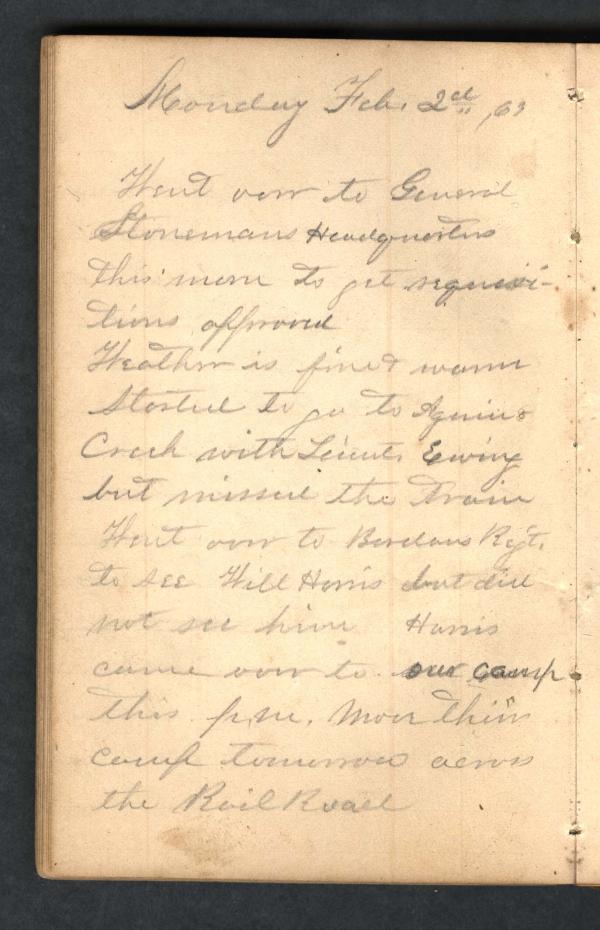 Monday Feb. 2nd, ,63
Went over to General
Stonemans Headquarters
this morn to get requisi-
tions approved
Weather is fine & warm
Started to go to Aquia
Creek with Lieut. Ewing
but missed the Train
Went over to Berdans Regt.
to see Will Harris but did
not see him Harris
came over to our camp
this p.m. Move thier
camp tomorrow across
the Rail Road